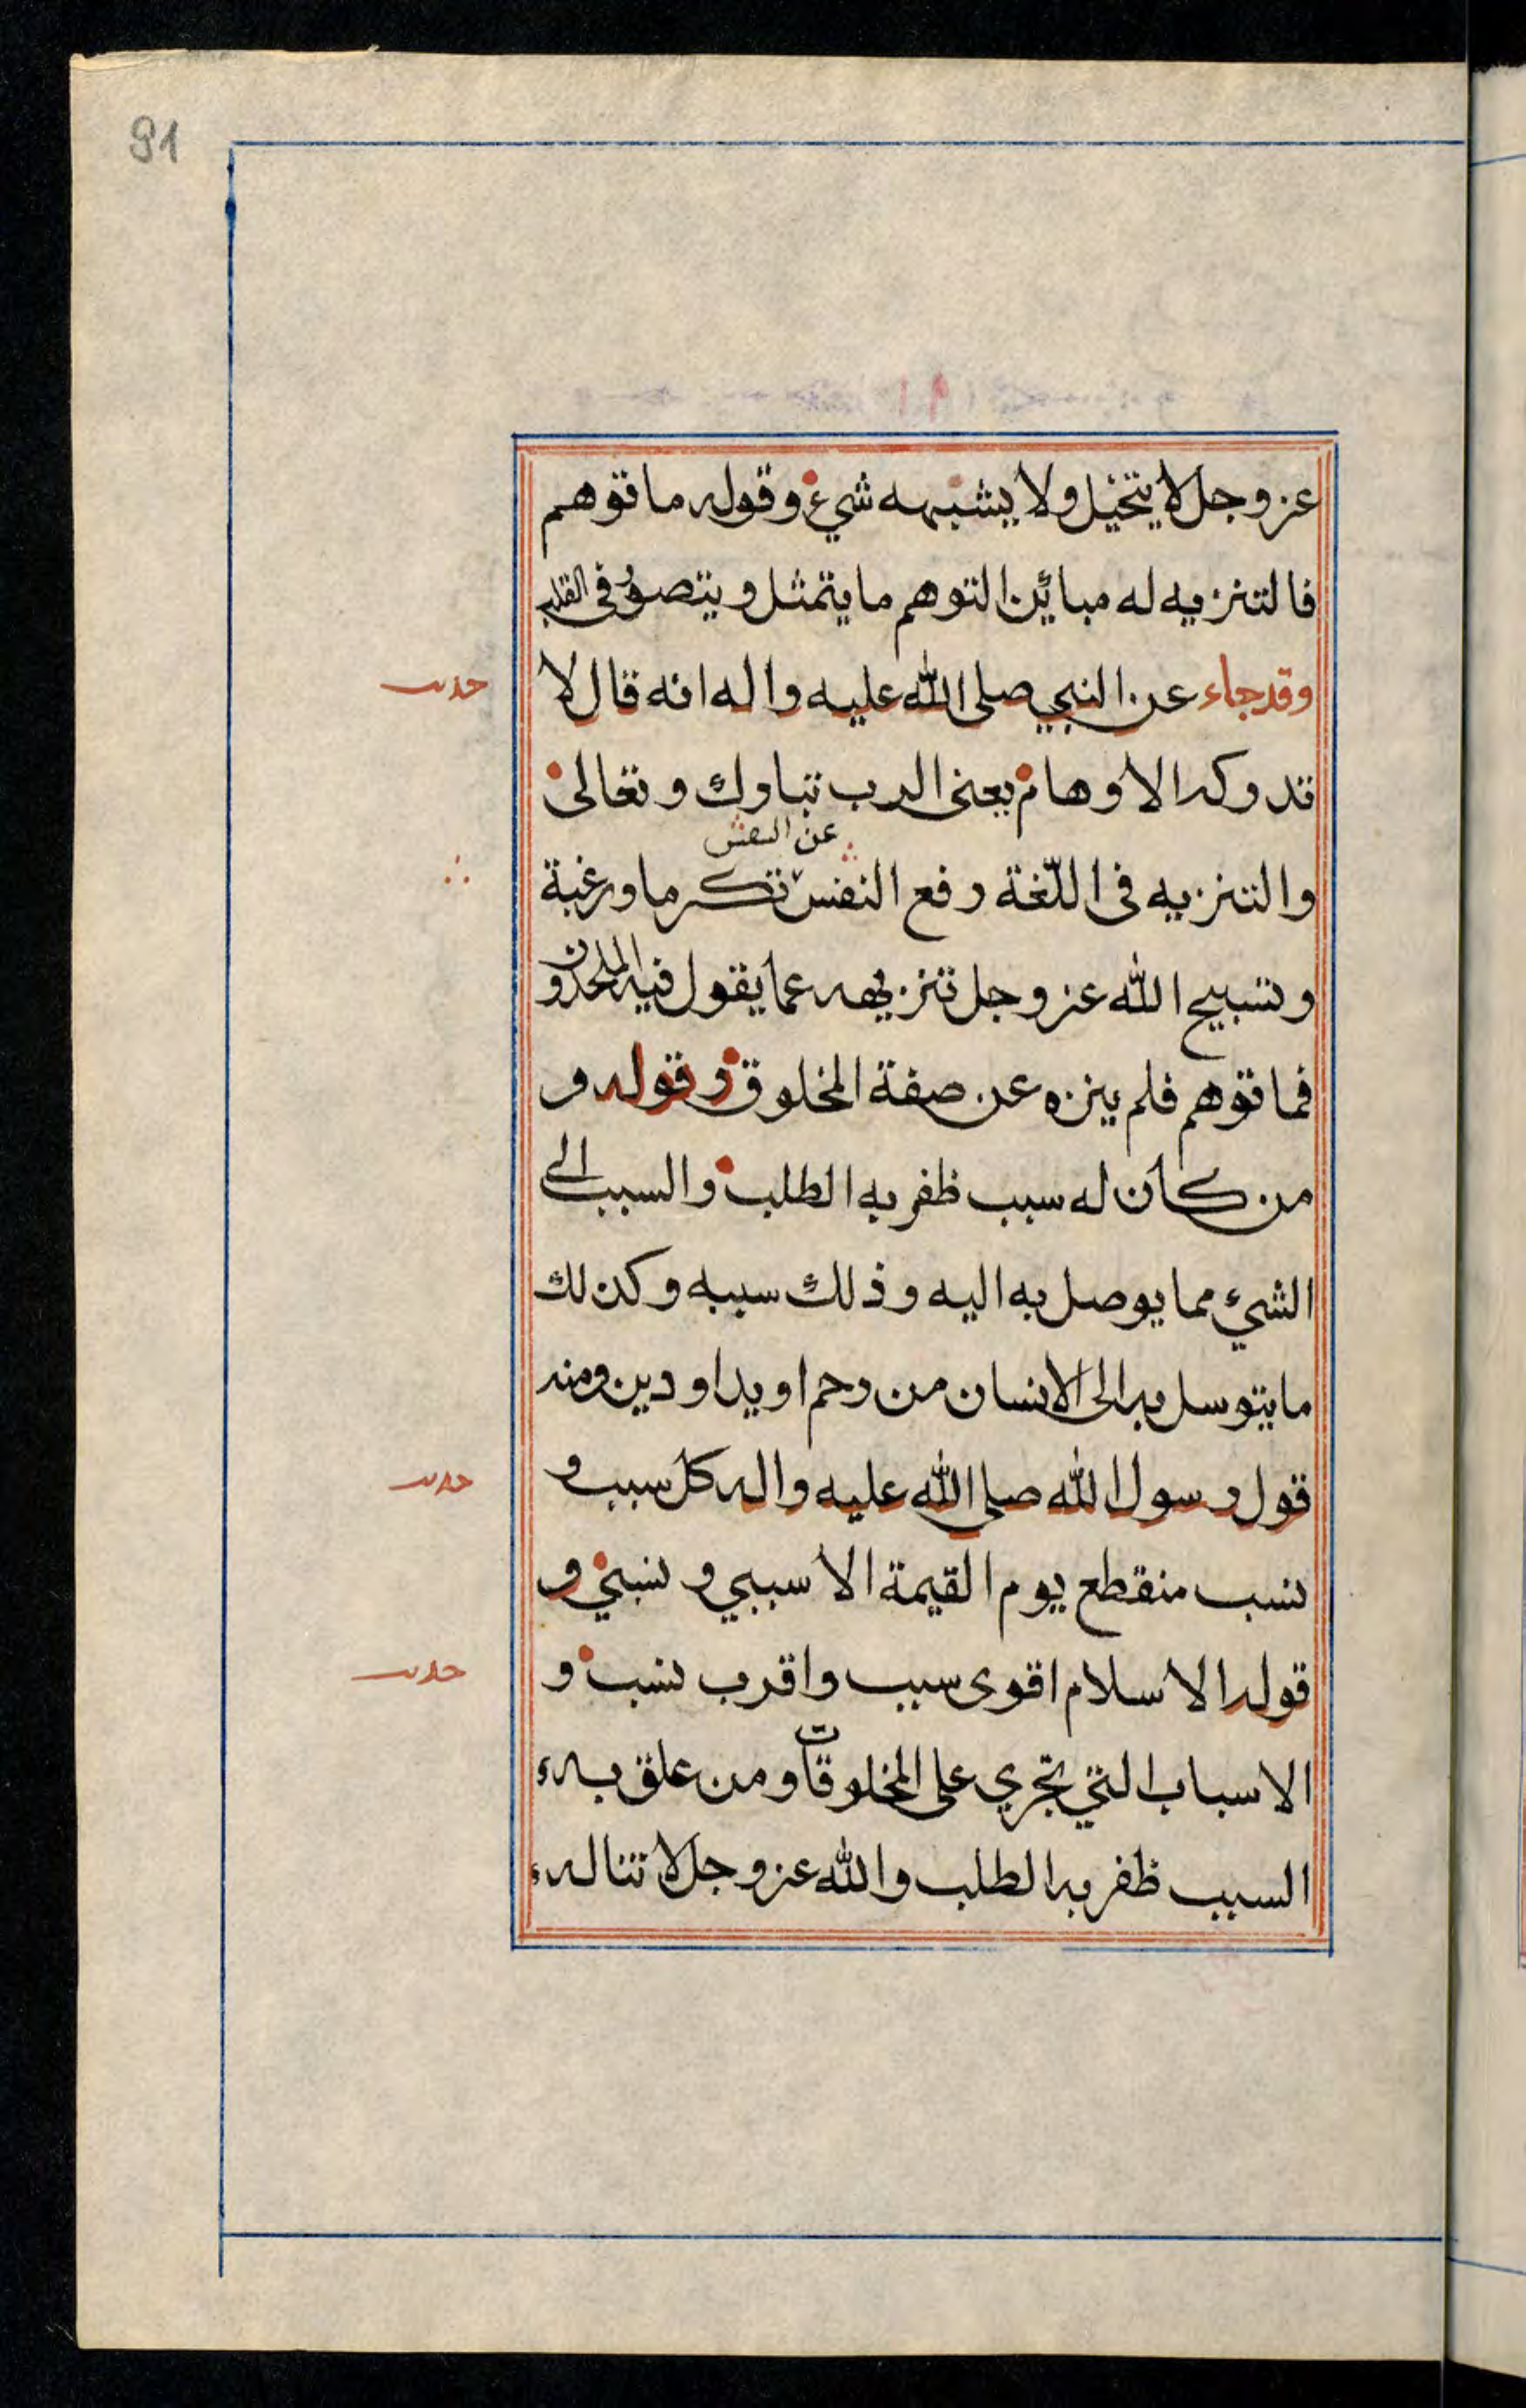 91
عز وجل لا يتخيل ولا يشبهه شيء وقوله ما توهم
فالتنزيه له مبائن التوهم ما يتمثل ويتصور في القلب
وقد جاء عن النبي صلى الله عليه واله انه قال لا
حديث
تدركه الاوهام يعني الرب تبارك وتعالى
عن النقش
والتنزيه في اللّغة رفع النفس تكرما ورغبة
وتسبيح الله عز وجل تنزيهه عما يقول فيه الملحدون
فما توهم فلم ينزه عن صفة المخلوق وقوله و
من كان له سبب ظفر به الطلب والسبب الى
الشيء مما يوصل به اليه وذلك سببه وكذلك
ما يتوسل به الى الانسان من رحم او يد او دين ومنه
قول رسول الله صلى الله عليه واله كل سبب و
حديث
نسب منقطع يوم القيمة الا سببي ونسبي و
قوله الاسلام اقوى سبب واقرب نسب و
حديث
الاسباب التي تجري على المخلوقات ومن علق به
السبب ظفر به الطلب والله عز وجل لا تناله